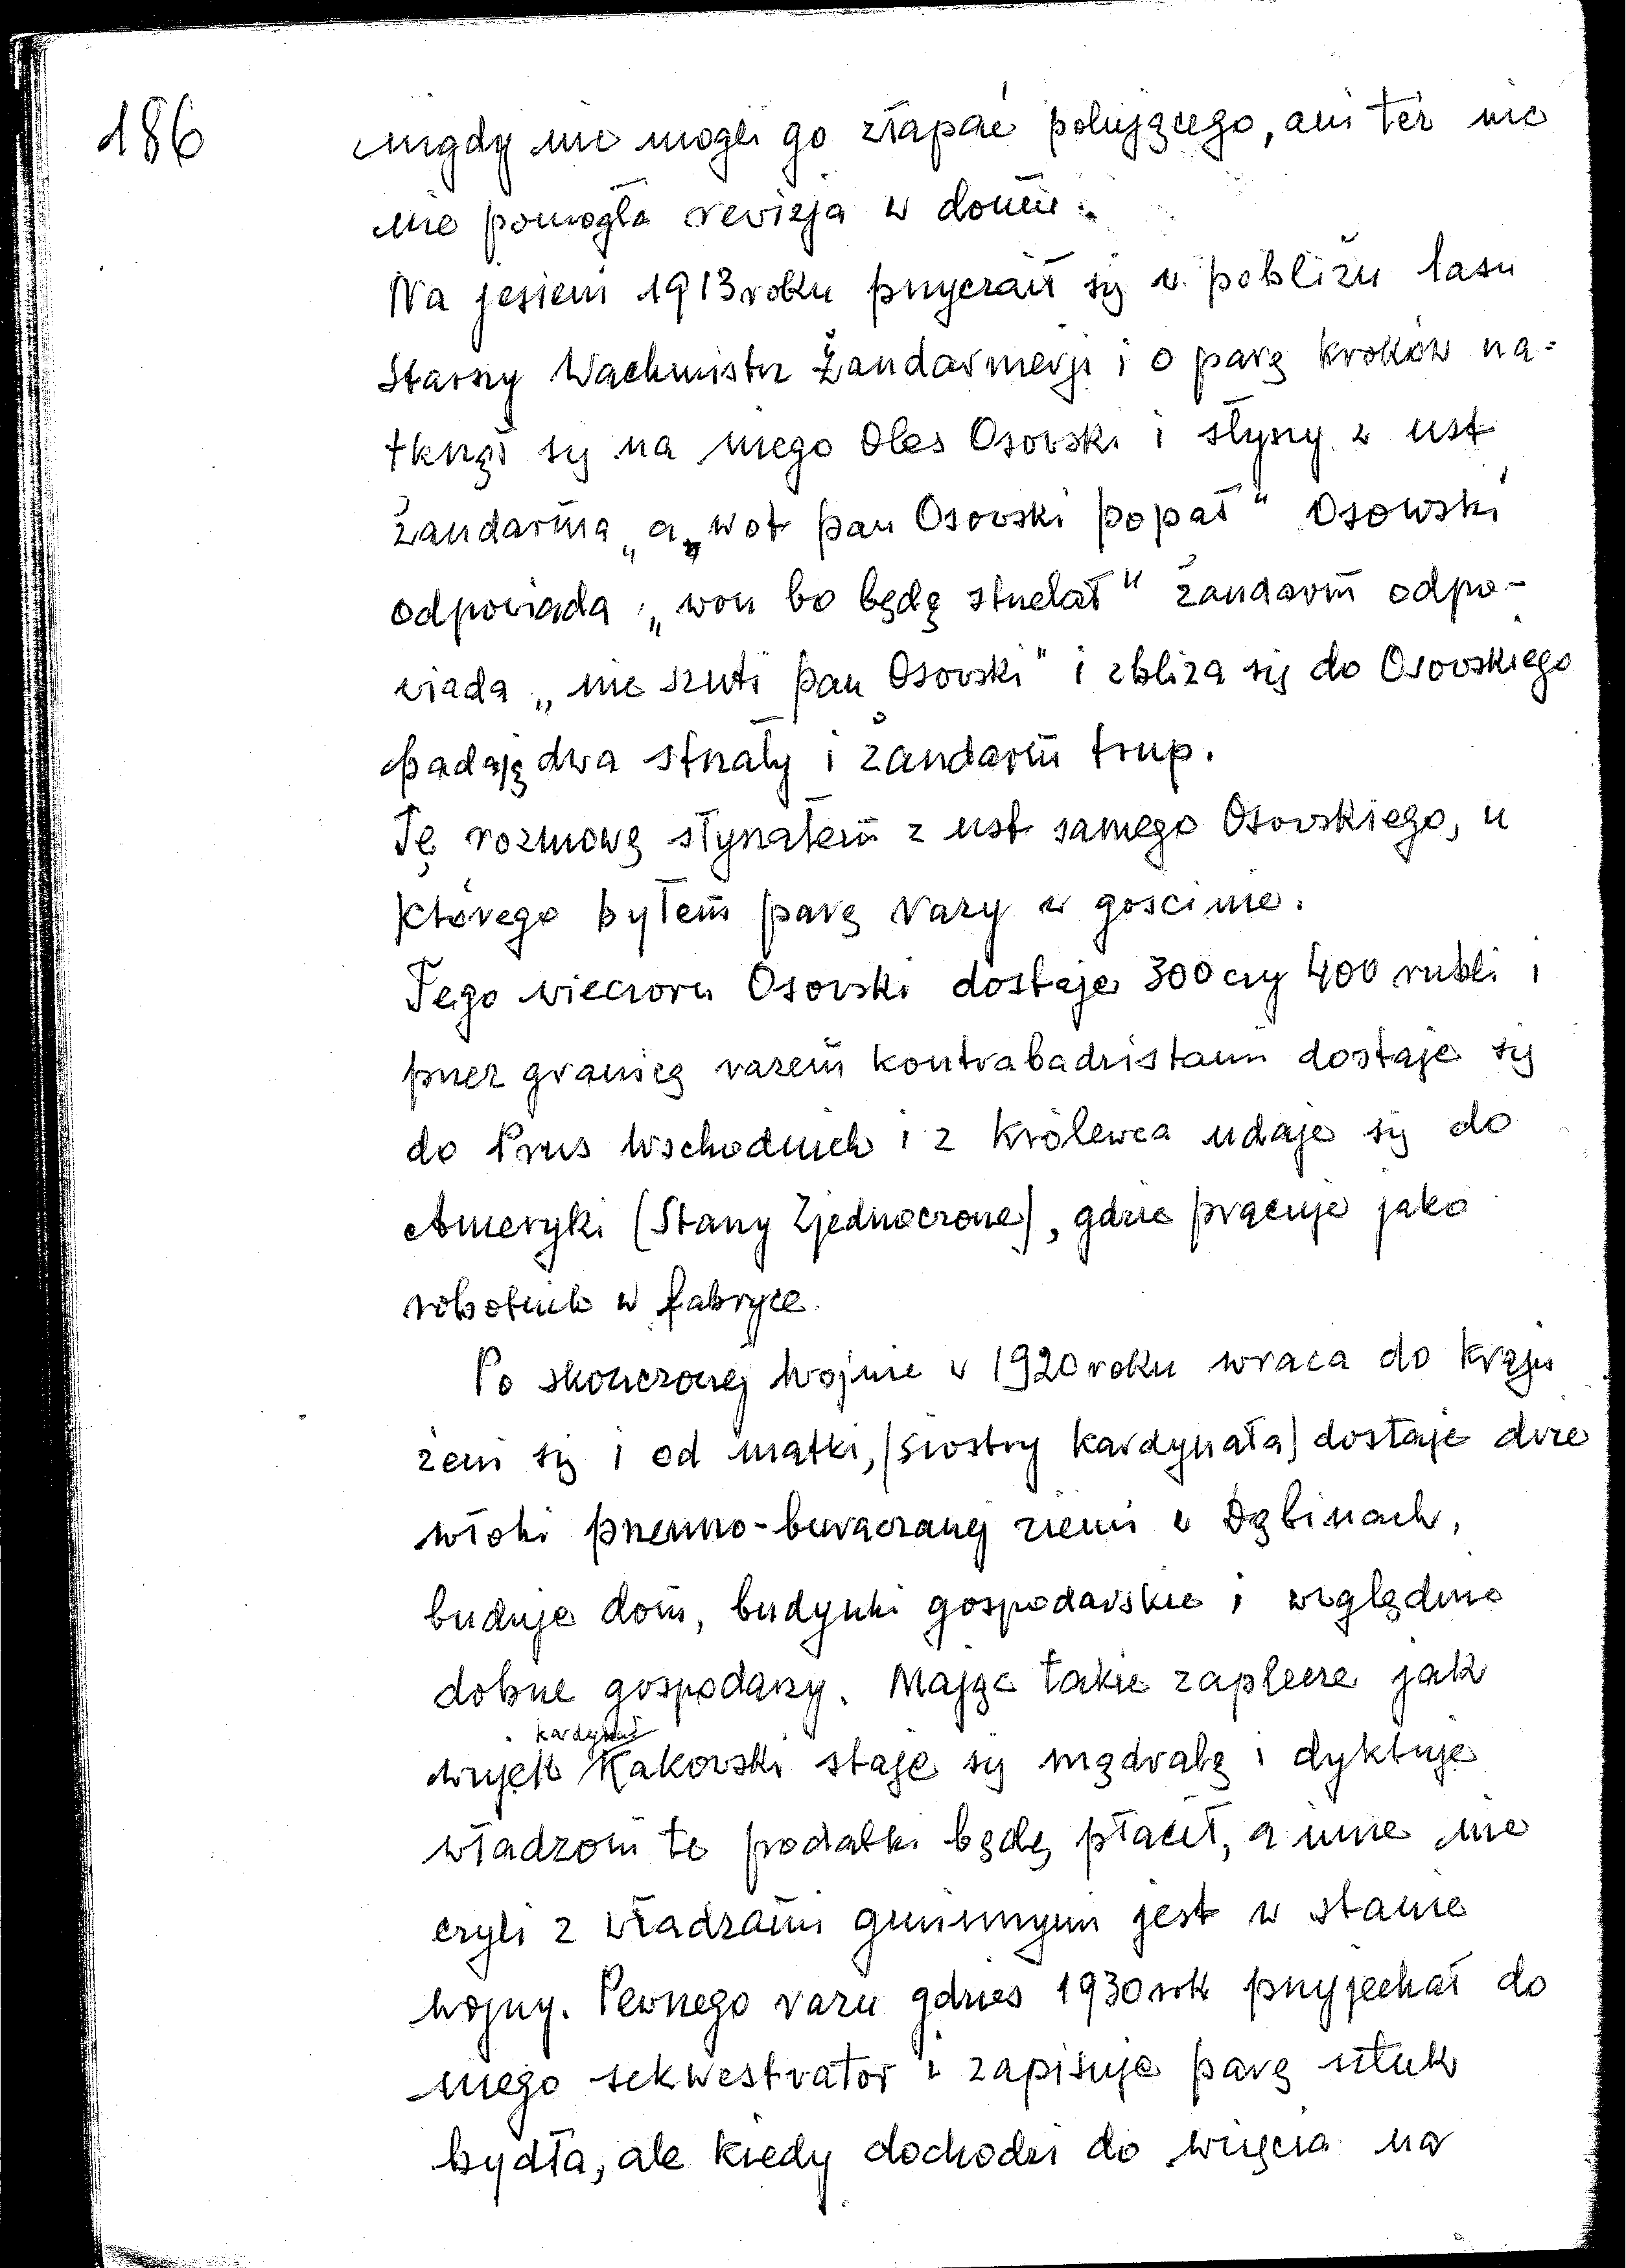 186
nigdy nie mogli go złapać polującego, ani też nic
nie pomogła rewizja w domu.
Na jesieni 1913 roku przyczaił się w pobliżu lasu
starszy Wachmistrz Żandarmerji i o parę kroków na-
tknął się na niego Oleś Osowski i słyszy z ust
żandarma „a wot pan Osowski popał" Osowski
odpowiada „won bo będę strzelał" żandarm odpo-
wiada „nie szuti pan Osowski" i zbliża się do Osowskiego
padają dwa strzały i żandarm trup.
Tę rozmowę słyszałem z ust samego Osowskiego, u
którego byłem parę razy w gościnie.
Tego wieczoru Osowski dostaje 300 czy 400 rubli i
przez granicę razem kontrabadzistami dostaje się
do Prus Wschodnich i z Królewca udaje się do
Ameryki (Stany Zjednoczone), gdzie pracuje jako
robotnik w fabryce.
Po skończonej wojnie w 1920 roku wraca do kraju
żeni się i od matki, (siostry kardynała) dostaje dwie
włóki pszenno-buraczanej ziemi w Dąbinach,
buduje dom, budynki gospodarskie i względnie
dobrze gospodarzy. Mając takie zaplecze jak
kardynał
wujek Kakowski staje się mądralą i dyktuje
władzom te podatki będę płacił, a inne nie
czyli z władzami gminnymi jest w stanie
wojny. Pewnego razu gdzieś 1930 rok przyjechał do
niego sekwestrator i zapisuje parę sztuk
bydła, ale kiedy dochodzi do wzięcia na